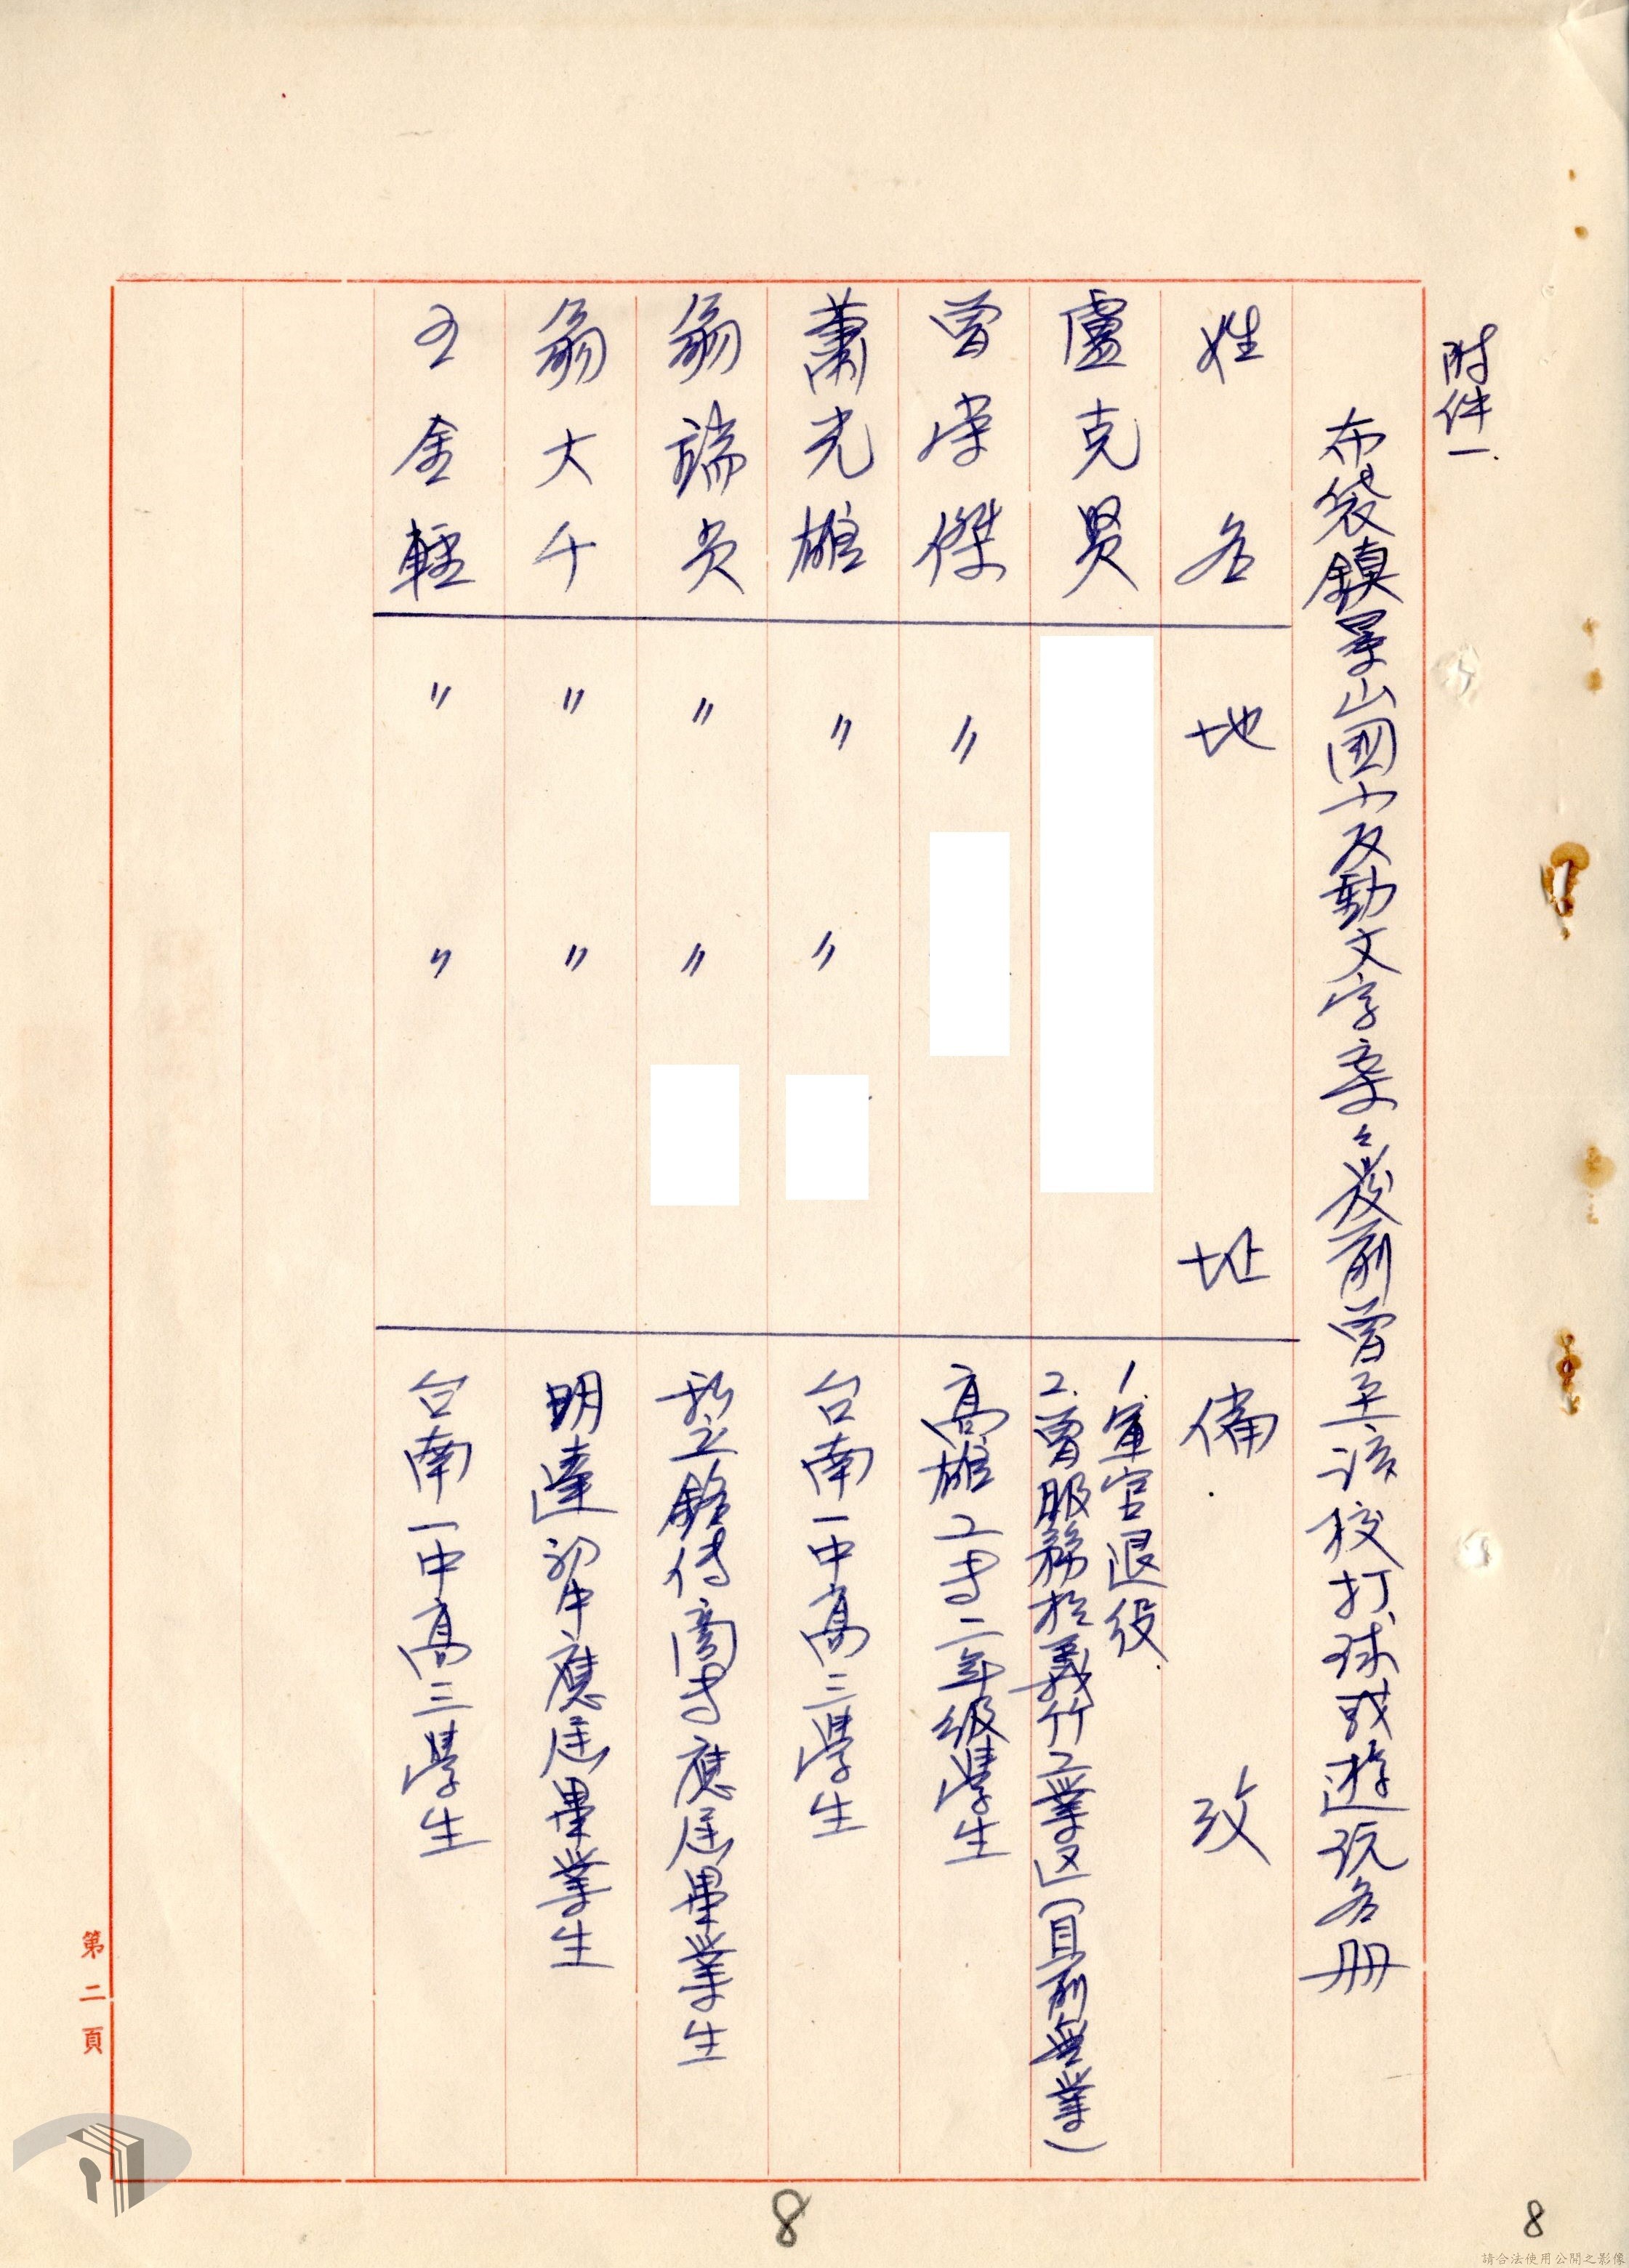 附件一.
布袋鎮景山國小反動文字案々發前曾至該校打球或遊玩名冊
姓名 地址 備攷
盧克賢 1.軍官退役.
2.曾服務於義竹工業区(目前無業)
曾榮傑 〃 高雄工専二年級學生
蕭光雄 〃 〃 台南一中高三學生
翁瑞贞 〃 〃 私立銘传商専應屆畢業生
翁大千 〃 〃 明達初中應屆畢業生
王金輕 〃 〃 台南一中高三學生
第二頁
8
8
請合法使用公開之影像